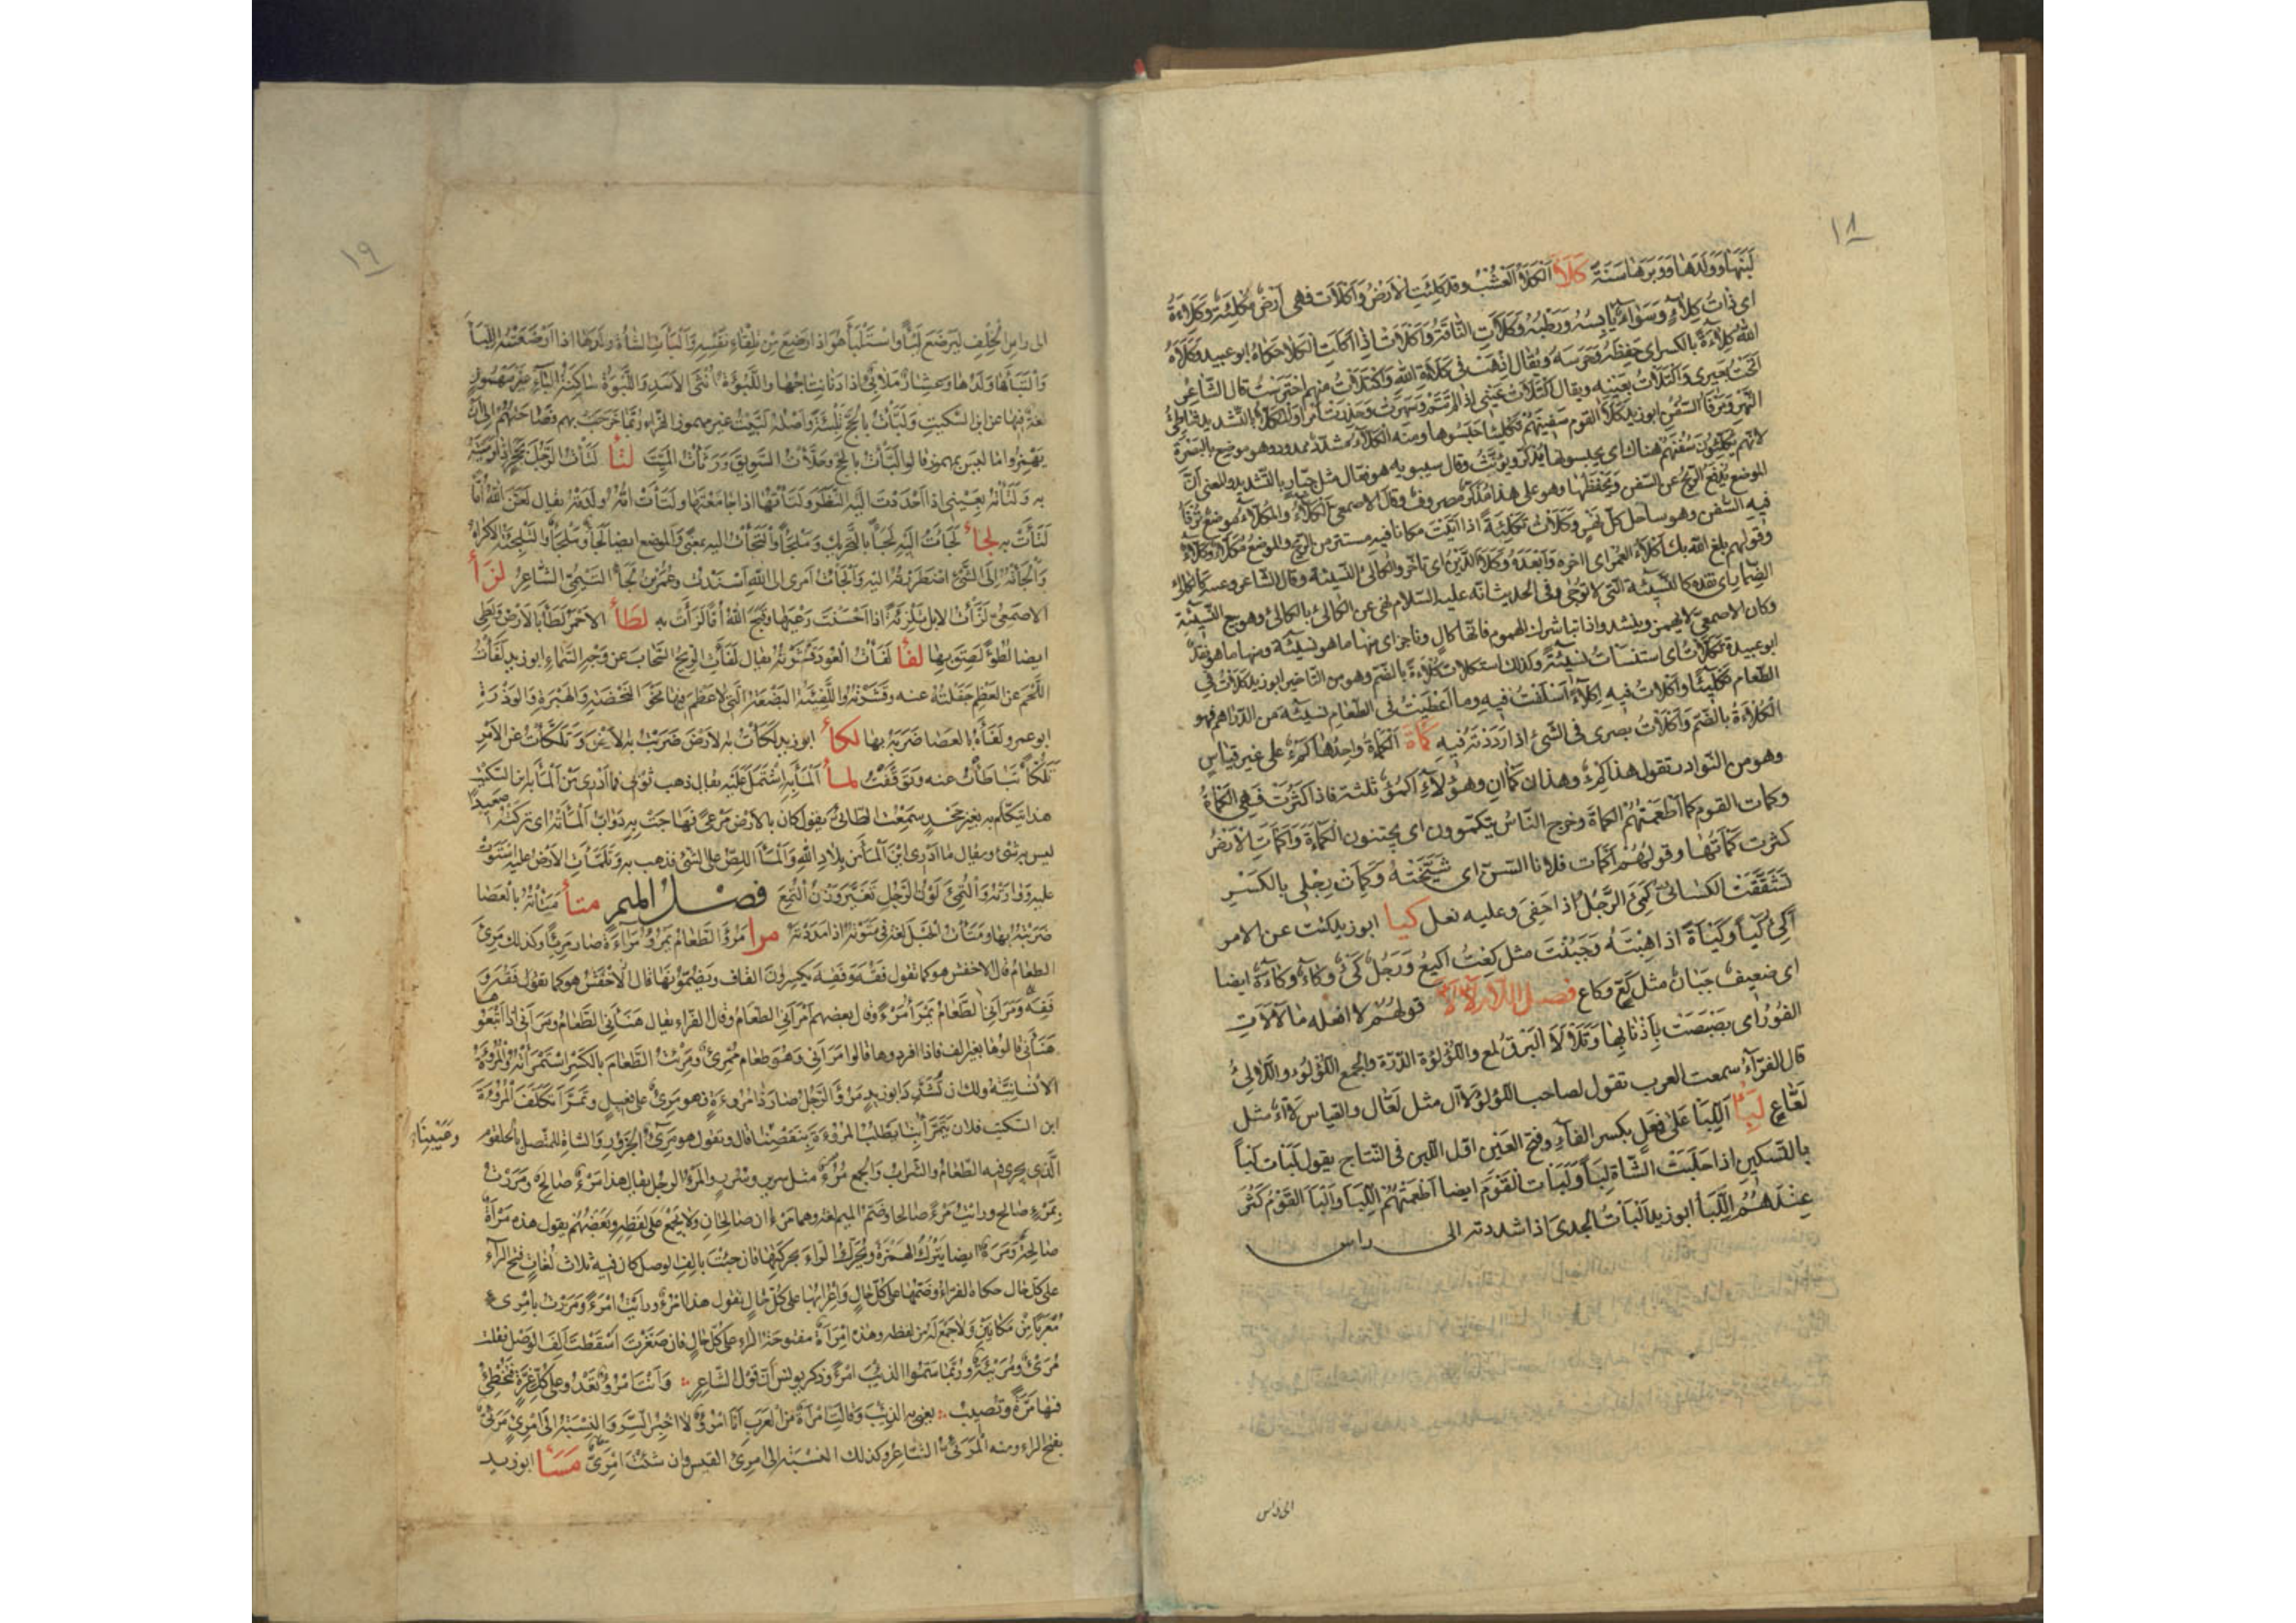 ١٨
لبنها وولدها ووبرها سنة كلأ الكلأ العشب وقد كلئت الارض واكلأت فهى ارض مكلئة وكلئة
اى ذات كلأ وسواء يابسه ورطبه وكلأت الناقة واكلأت اذا اكلت الكلأ حكاه ابو عبيد وكلأه
الله كلاءة بالكسر اى حفظه وحرسه ويقال اذهب فى كلاءة الله واكتلأت منهم احترست قال الشاعر
انخت بعيرى واكتلأت بعينه ويقال اكتلأت عينى اذا لم تنم وسهرت وحذرت امرا والكلاء بالتشديد شاطئ
النهر ومرفأ السفن ابو زيد كلأ القوم سفينتهم تكليئا حبسوها ومنه الكلاء مشدد ممدود وهو موضع بالبصرة
لانهم يكلئون سفنهم هناك اى يحبسونها يذكر ويؤنث وقال سيبويه هو فعال مثل جبار بالتشديد والمعنى ان
الموضع يدفع الريح عن السفن ويحفظها وهو على هذا مذكر مصروف وقال الاصمعى الكلاء والمكلأ موضع ترفأ
فيه السفن وهو ساحل كل نهر وكلأت تكلئة اذا اتيت مكانا فيه مستتر من الريح والموضع مكلأ وكلاء
وقولهم بلغ الله بك اكلأ العمر اى اخره وابعده وكلأ الدين اى تأخر والكالئ النسيئة وقال الشاعر وعينه كالكالئ
الضمار اى نقده كالنسيئة التى لا ترجى وفى الحديث انه عليه السلام نهى عن الكالئ بالكالئ وهو بيع النسيئة بالنسيئة
وكان الاصمعى لا يهمز وينشد واذا تباشرك الهموم فانها كال وناجز اى منها ما هو نسيئة ومنها ما هو نقد
ابو عبيدة تكلأت اى استنسأت نسيئة وكذلك استكلأت كلأة بالضم وهو من التاخير ابو زيد كلأت فى
الطعام تكليئا واكلأت فيه اكلاء اسلفت فيه وما اعطيت فى الطعام نسيئة من الدراهم فهو
الكلأة بالضم واكلأت بصرى فى الشئ اذا رددته فيه كمأ الكمأة واحدها كمء على غير قياس
وهو من النوادر تقول هذا كمء وهذان كمآن وهؤلاء اكمؤ ثلثة فاذا كثرت فهى الكمأة
وكمأت القوم كمأ اطعمتهم الكمأة وخرج الناس يتكمؤون اى يجتنون الكمأة واكمأت الارض
كثرت كمأتها وقولهم اكمأت فلانا السن اى شيخته وكمئت رجلى بالكسر
تشققت الكسائى كمئ الرجل اذا حفى وعليه نعل كيأ ابو زيد كئت عن الامر
اكئ كيأ وكيأة اذا هبته وجبنت مثل كعت اكيع ورجل كئ وكاء وكاءة ايضا
اى ضعيف جبان مثل كع وكاع فصل اللام لألأ قولهم لا افعله ما لألأت
الفور اى بصبصت باذنابها وتلألأ البرق لمع واللؤلؤة الدرة والجمع اللؤلؤ واللآلئ
قال الفراء سمعت العرب تقول لصاحب اللؤلؤ لأآل مثل لعال والقياس لأاء مثل
لعاع لبأ اللبأ على فعل بكسر الفاء وفتح العين اول اللبن فى النتاج يقول لبأت لبأ
بالتسكين اذا حلبت الشاة لبأ ولبأت القوم ايضا اطعمتهم اللبأ والبأ القوم كثر
عندهم اللبأ ابو زيد البأت الجدى اذا شددته الى راس
الى راس
١٩
الى راس الخلف ليرضع لبأ واستلبأ هو اذا رضع من تلقاء نفسه والبأت الشاة ولدها اذا ارضعته اللبأ
والتبأها ولدها وعشار ملابئ اذا دنا نتاجها واللبؤة انثى الاسد واللبوة ساكنة الباء غير مهموز
لغة فيها عن ابن السكيت ولبأت بالحج تلبئة واصله لبيت غير مهموز الفراء ربما خرجت بهم فصاحتهم الى ان
يهمزوا ما ليس بمهموز قالوا لبأت بالحج وحلأت السويق ورثأت الميت لتأ لتأت الرجل بحجر اذا رميته
به ولتأته بعينى اذا احددت اليه النظر ولتأتها اذا جامعتها ولتأت امه ولدته يقال لعن الله اما
لتأت به لجأ لجأت اليه لجأ بالتحريك وملجأ والتجأت اليه بمعنى والموضع ايضا لجأ وملجأ والتلجئة الاكراه
والجأته الى الشئ اضطررته اليه والجأت امرى الى الله اسندت وعمر بن لجأ التيمى الشاعر لزأ
الاصمعى لزأت الابل تلزئة اذا احسنت رعيتها وقبح الله اما لزأت به لطأ الاحمر لطأ بالارض ولطئ
ايضا لطوء لصق بها لفأ لفأت العود قشرته يقال لفأت الريح السحاب عن وجه السماء ابو زيد لفأت
اللحم عن العظم جفلته عنه وقشرته واللفيئة البضعة التى لا عظم فيها نحو النحضة والهبرة والوذرة
ابو عمرو لفأه بالعصا ضربه بها لكأ ابو زيد لكأت به الارض ضربت به الارض وتلكأت عن الامر
تلكؤا تباطأت عنه وتوقفت لمأ المأ به اشتمل عليه يقال ذهب ثوبى فما ادرى من المأ به ابن السكيت
هذا يتكلم به بغير جحد سمعت الطائى يقول كان بالارض مرعى فهاجت به دواب المأته اى تركته صعيدا
ليس به شئ ويقال ما ادرى اين المأ من بلاد الله والمأ اللص على الشئ فذهب به وتلمأت الارض عليه استوت
عليه ووارته والتمئ لون الرجل تغير وزن التمع فصل الميم متأ متأته بالعصا
ضربته بها ومتأت الحبل لغة فى متوته اذا مددته مرأ مرؤ الطعام يمرؤ مرآءة صار مريئا وكذلك مرئ
الطعام قال الاخفش هو كما تقول فقه وفقه يكسرون القاف ويضمونها قال الاخفش هو كما تقول فقه و
فقه ومرأنى الطعام يمرأ مرءا وقال بعضهم امرأنى الطعام وقال الفراء يقال هنأنى الطعام ومرأنى اذا اتبعوها
هنأنى قالوها بغير الف فاذا افردوها قالوا امرأنى وهو طعام ممرئ ومرئت الطعام بالكسر استمرأته والمروءة
الانسانية ولك ان تشدد ابو زيد مرؤ الرجل صار ذا مروءة فهو مرئ على فعيل وتمرأ تكلف المروءة
ابن السكيت فلان يتمرأ بنا اى يطلب المروءة بنقصنا قال وتقول هو مرئ الجزور والشاة للمتصل بالحلقوم
الذى يجرى فيه الطعام والشراب والجمع مرؤ مثل سرير وسرر والمرء الرجل يقال هذا مرء صالح ومررت
بمرء صالح ورأيت مرءا صالحا وضم الميم لغة وهما مرءان صالحان ولا يجمع على لفظه وبعضهم يقول هذه مرأة
صالحة ومرة ايضا بترك الهمزة وتحريك الراء بحركتها فان جئت بالف الوصل كان فيه ثلاث لغات فتح الراء
على كل حال حكاه الفراء وضمها على كل حال واعرابها على كل حال تقول هذا امرؤ ورأيت امرءا ومررت بامرئ
معربا من مكانين ولا جمع له من لفظه وهذه امرأة مفتوحة الراء على كل حال فان صغرت اسقطت الف الوصل فقلت
مرئ ومريئة وربما سموا الذئب امرءا وذكر يونس ان قول الشاعر وانت امرؤ تعدو على كل غرة فتخطئ
فيها مرة وتصيب يعنى به الذئب وقالت امرأة من العرب انا امرؤ لا اخبر السر والنسبة الى امرئ مرئى
بفتح الراء ومنه المرئى الشاعر وكذلك النسبة الى امرئ القيس وان شئت امرئى مسأ ابو زيد